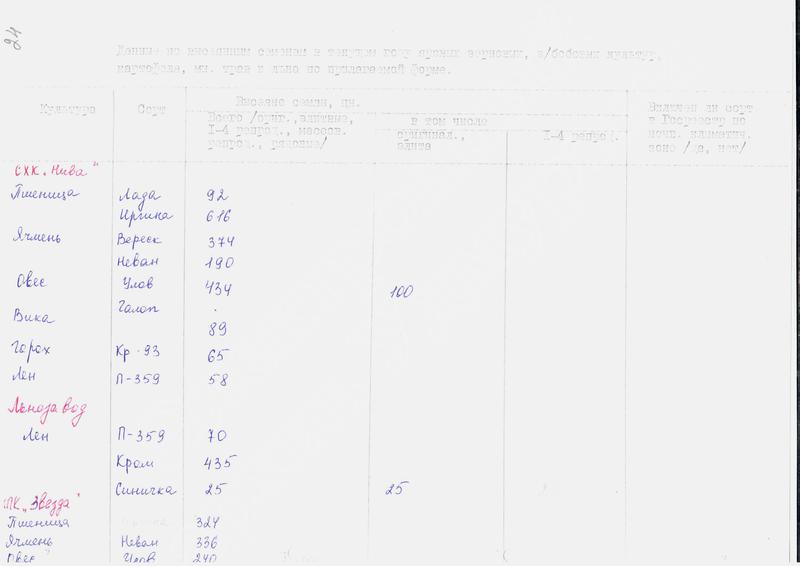 24
Данные по высеянным семенам в текущем году яровых зерновых, з/бобовых культур,
картофеля, мн. трав и льна по прилагаемой форме.
Культура Сорт Высеяно семян, цн. Включен ли сорт
Всего /ориг., элитные, в том числе в Госреестр по
I-4 репрод., массов. оригинал., I-4 репрод. почв. климатич.
репрод., рядовые/ элита зоне /да, нет/
СХК „Нива"
Пшеница Лада 92
Иргина 616
Ячмень Вереск 374
Неван 190
Овес Улов 434 100
Галоп
Вика 89
Горох Кр-93 65
Лен П-359 58
Льнозавод
Лен П-359 70
Кром 435
Синичка 25 25
СПК „Звезда"
Пшеница 324
Ячмень Неван 336
Овес Улов 240